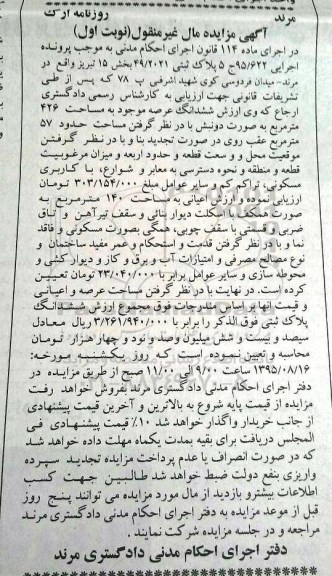 مرند روزنامه ارک
آگهی مزایده مال غیرمنقول(نوبت اول)
در اجرای ماده ۱۱۴ قانون اجرای احکام مدنی به موجب پرونده
اجرایی ۹۵/۶۲۲ج ۵ پلاک ثبتی ۴۹/۲۰۲۱ بخش ۱۵ تبریز واقع در
مرند-میدان فردوسی کوی شهید اشرفی پ ۷۸ که پس از طی
تشریفات قانونی جهت ارزیابی به کارشناس رسمی دادگستری
ارجاع که وی ارزش ششدانگ عرصه موجود به مساحت ۴۲۶
مترمربع به صورت دونبش با در نظر گرفتن مساحت حدود ۵۷
مترمربع عقب روی در صورت تجدید بنا و با در نظر گرفتن
موقعیت محل و و سعت قطعه و حدود اربعه و میزان مرغوبیت
قطعه و منطقه و نحوه دسترسی به معابر و شوارع، با کاربری
مسکونی، تراکم کم و سایر عوامل مبلغ ۳۰۳/۱۵۴/۰۰۰ تومان
ارزیابی نموده و ارزش اعیانی به مساحت ۱۴۰ مترمربع به
صورت همکف با اسکلت دیوار بنائی و سقف تیرآهن و تاق
ضربی و قسمتی با سقف چوبی، همگی بصورت مسکونی و فاقد
نما و با در نظر گرفتن قدمت و استحکام و عمر مفید ساختمان و
نوع مصالح مصرفی و امتیازات آب و برق و گاز و دیوار کشی و
محوطه سازی و سایر عوامل برابر با ۲۳/۰۴۰/۰۰۰ تومان تعیین
کرده است. در نهایت با در نظر گرفتن مساحت عرصه و اعیانی
و قیمت آنها بر اساس مندرجات فوق مجموع ارزش ششدانگ
پلاک ثبتی فوق الذکر را برابر با ۳/۲۶۱/۹۴۰/۰۰۰ ریال معادل
سیصد و بیست و شش میلیون وصد و نود و چهار هزار تومان
محاسبه و تعیین نموده است که روز یکشنبه مورخه:
۱۳۹۵/۰۸/۱۶ ساعت ۹/۰۰ الی ۱۱/۰۰ صبح از طریق مزایده در
دفتر اجرای احکام مدنی دادگستری مرند بفروش خواهد رفت
مزایده از قیمت پایه شروع به بالاترین و آخرین قیمت پیشنهادی
از جانب خریدار واگذار خواهد شد ۱۰٪ قیمت پیشنهادی فی
المجلس دریافت برای بقیه بمدت یکماه مهلت داده خواهد شد
که در صورت انصراف یا عدم پرداخت مزایده تجدید سپرده
واریزی بنفع دولت ضبط خواهد شد طالبین جهت کسب
اطلاعات بیشترو بازدید از مال مورد مزایده می توانند پنج روز
قبل از موعد مزایده به دفتر اجرای احکام مدنی دادگستری مرند
مراجعه و در جلسه مزایده شرکت نمایند.
دفتر اجرای احکام مدنی دادگستری مرند